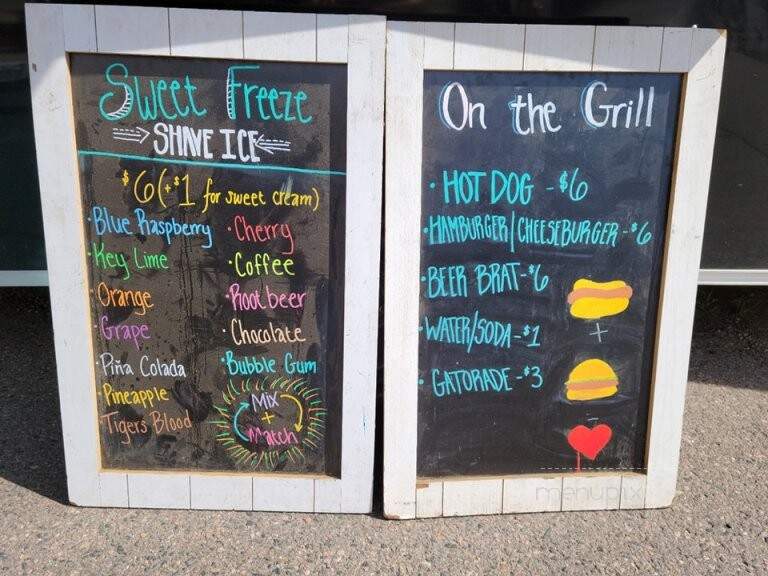 Sweet Freeze
SHAVE ICE
$6 (+$1 for sweet cream)
• Blue Raspberry
• Key Lime
• Orange
• Grape
• Piña Colada
• Pineapple
• Tigers Blood
• Cherry
• Coffee
• Root beer
• Chocolate
• Bubble Gum
Mix
+
Match
On the Grill
• HOT DOG - $6
• HAMBURGER/CHEESEBURGER - $6
• BEER BRAT - $6
• WATER/SODA - $1
• GATORADE - $3
+
=
menupix